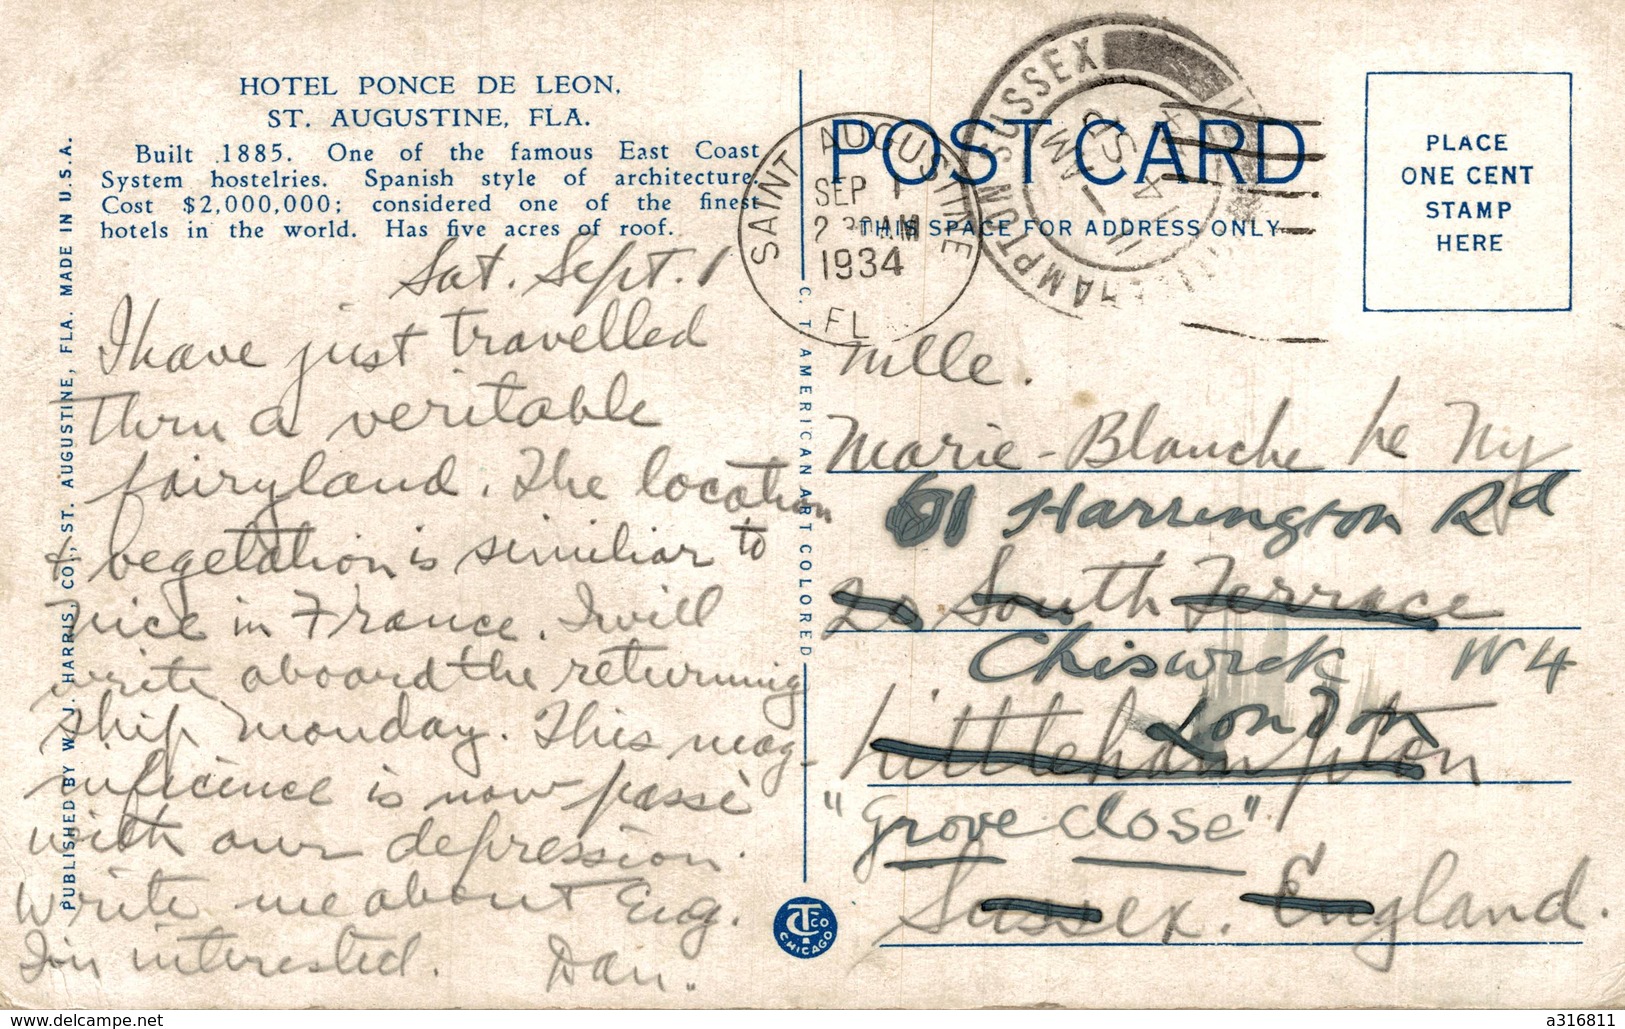 HOTEL PONCE DE LEON,
ST. AUGUSTINE, FLA.
Built 1885. One of the famous East Coast
System hostelries. Spanish style of architecture.
Cost $2,000,000; considered one of the finest
hotels in the world. Has five acres of roof.
Sat. Sept. 1
I have just travelled
thru a veritable
fairyland. The location
& vegetation is similiar to
Nice in France. I will
write aboard the returning
ship Monday. This mag-
nificence is now passé
with our depression.
Write me about Eng.
I'm interested. Dan.
PUBLISHED BY W. J. HARRIS, CO., ST. AUGUSTINE, FLA. MADE IN U.S.A.
C. T. AMERICAN ART COLORED
CT & CO
CHICAGO
SAINT AUGUSTINE
SEP 1
2 30 AM
1934
FL
POST CARD
THIS SPACE FOR ADDRESS ONLY
HAMPTON SUSSEX
PLACE
ONE CENT
STAMP
HERE
Mlle.
Marie-Blanche Le Ny
61 Harrington Rd
20 South Terrace
Chiswick W4
London
Littlehampton
"Grove Close"
Sussex. England.
a316811